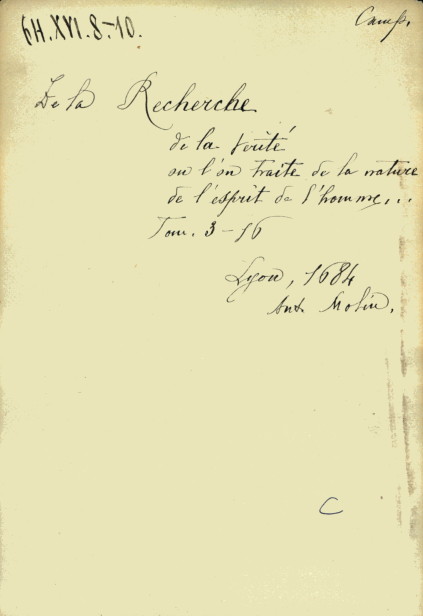 6H.XVI.8-10.
Camp.
De la Recherche
de la Vérité
ou l'on traite de la nature
de l'esprit de l'homme...
Tom. 3-16
Lyon, 1684
Ant. Molin.
C